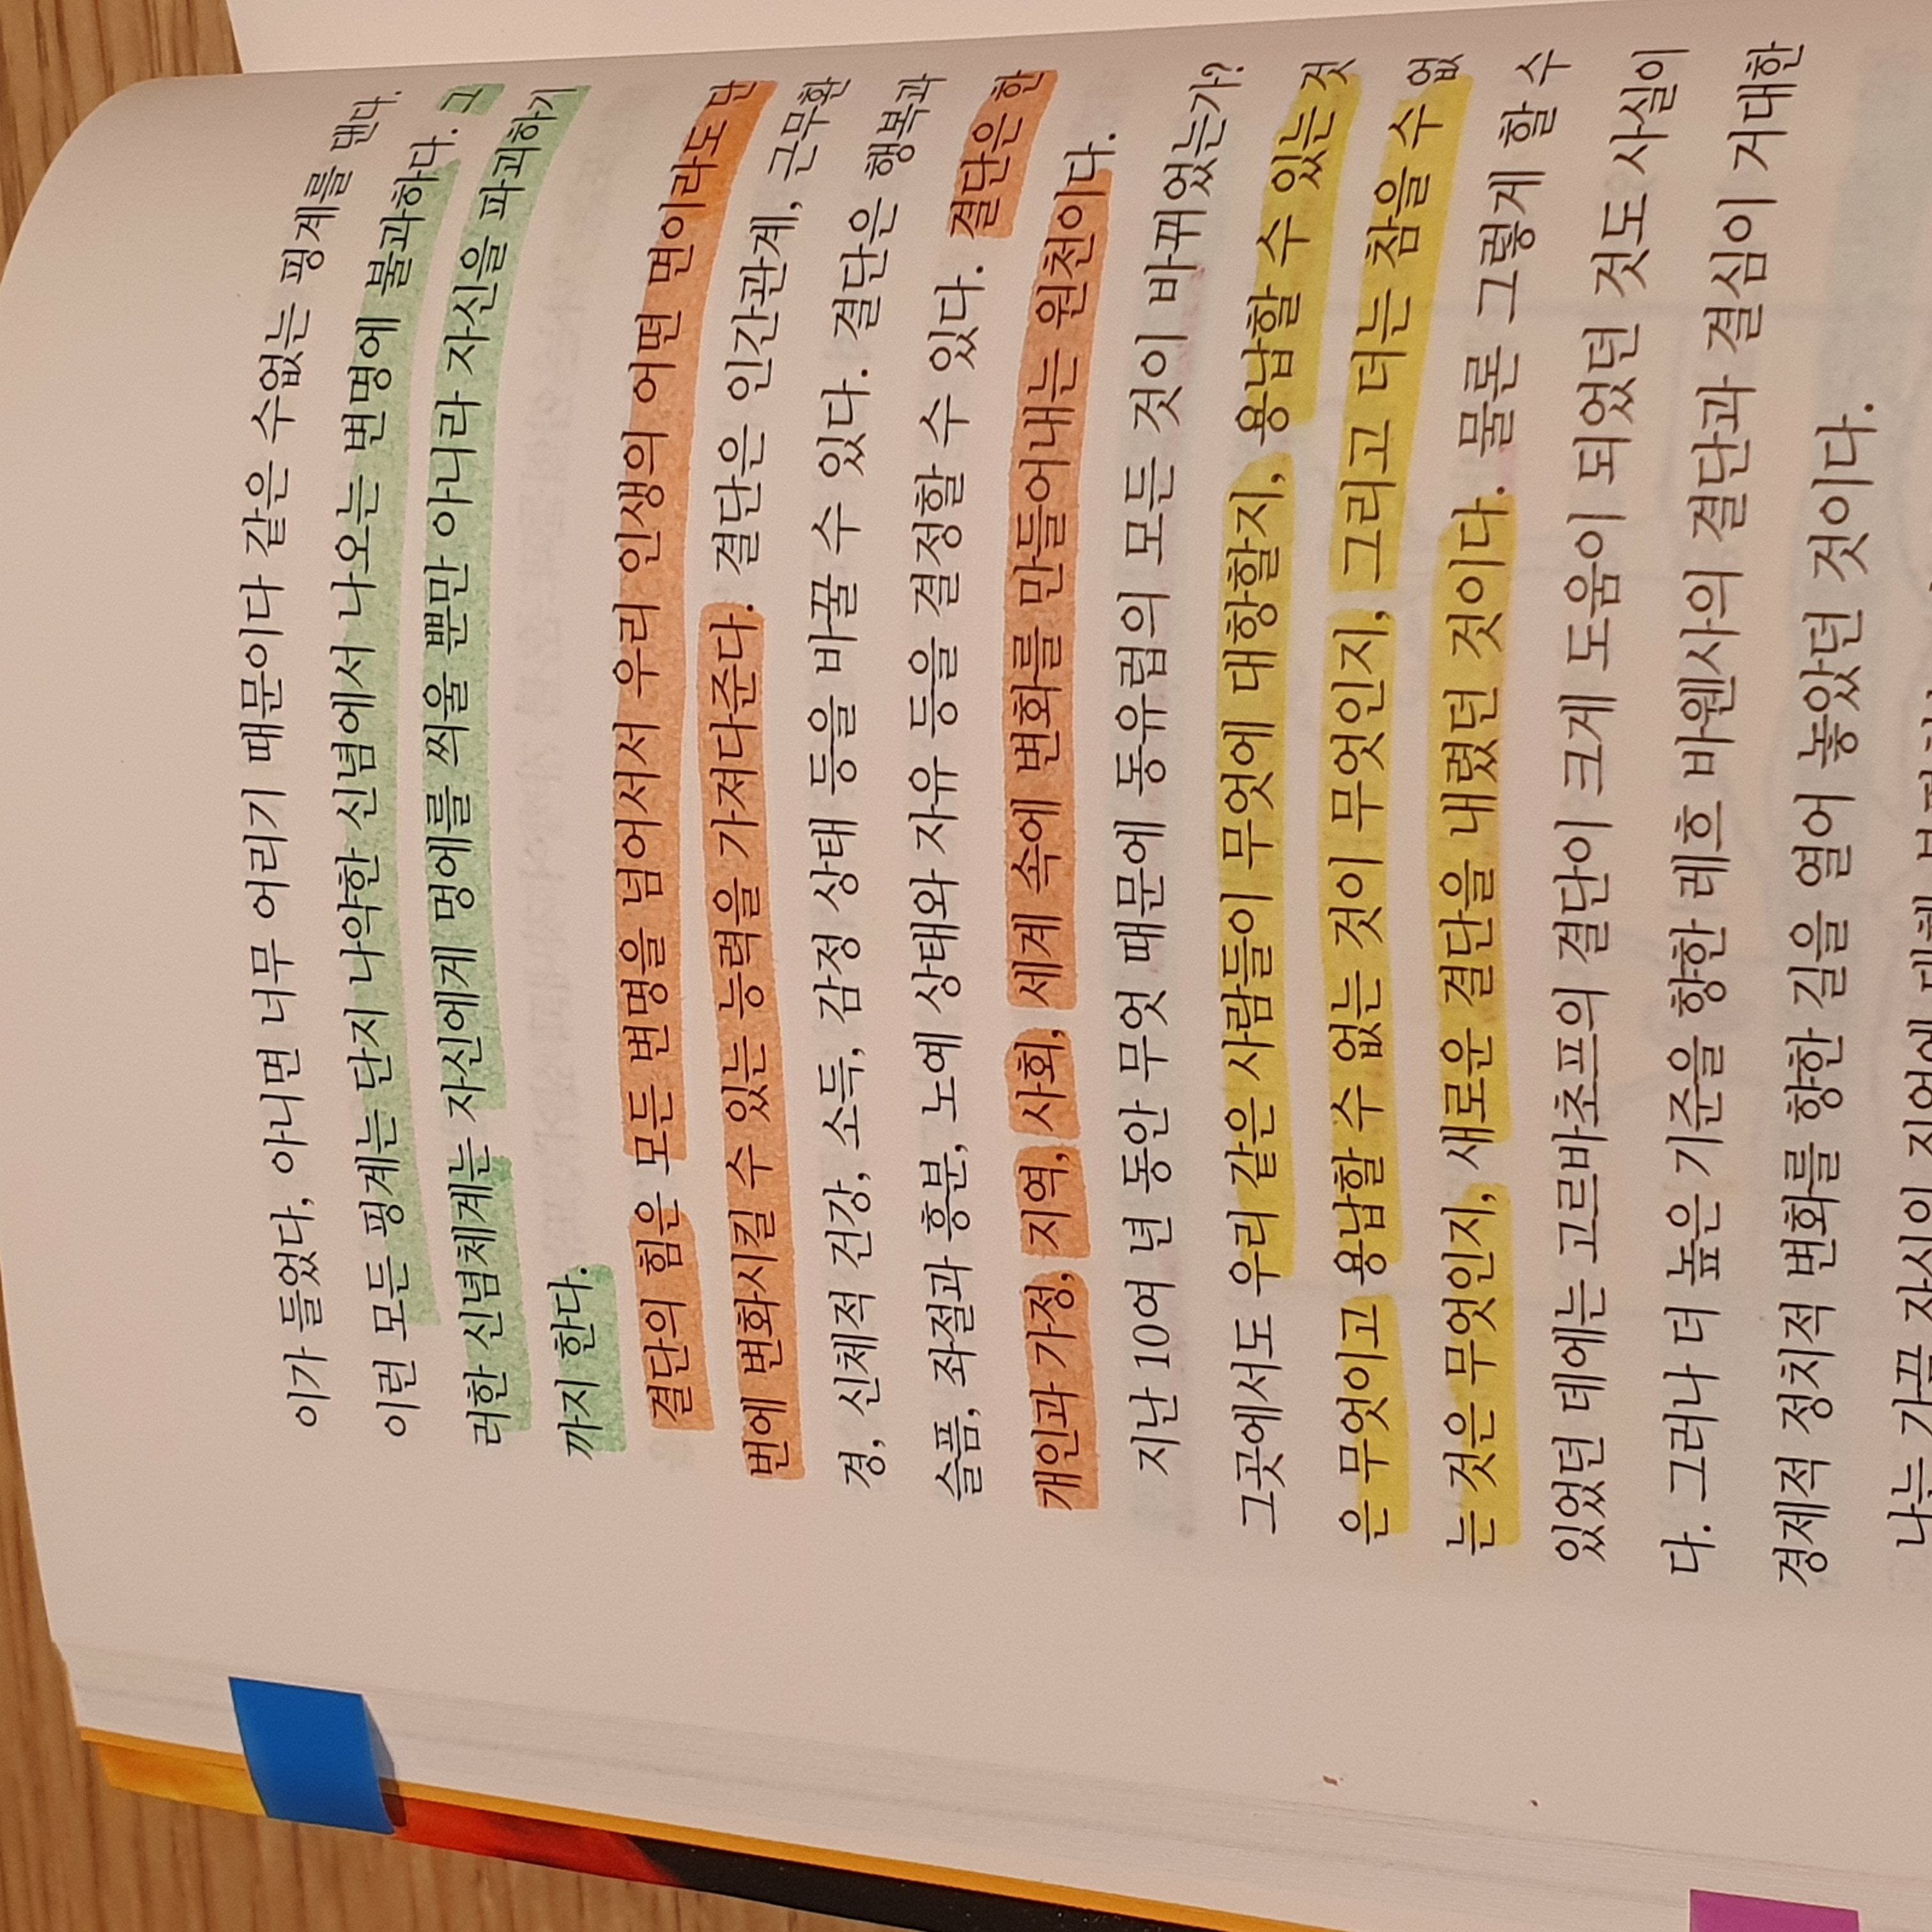 이가 들었다, 아니면 너무 어리기 때문이다 같은 수없는 핑계를 댄다.
이런 모든 핑계는 단지 나약한 신념에서 나오는 변명에 불과하다. 그
러한 신념체계는 자신에게 멍에를 씌울 뿐만 아니라 자신을 파괴하기
까지 한다.
결단의 힘은 모든 변명을 넘어서서 우리 인생의 어떤 면이라도 단
번에 변화시킬 수 있는 능력을 가져다준다. 결단은 인간관계, 근무환
경, 신체적 건강, 소득, 감정 상태 등을 바꿀 수 있다. 결단은 행복과
슬픔, 좌절과 흥분, 노예 상태와 자유 등을 결정할 수 있다. 결단은 한
개인과 가정, 지역, 사회, 세계 속에 변화를 만들어내는 원천이다.
지난 10여 년 동안 무엇 때문에 동유럽의 모든 것이 바뀌었는가?
그곳에서도 우리 같은 사람들이 무엇에 대항할지, 용납할 수 있는 것
은 무엇이고 용납할 수 없는 것이 무엇인지, 그리고 더는 참을 수 없
는 것은 무엇인지, 새로운 결단을 내렸던 것이다. 물론 그렇게 할 수
있었던 데에는 고르바초프의 결단이 크게 도움이 되었던 것도 사실이
다. 그러나 더 높은 기준을 향한 레흐 바웬사의 결단과 결심이 거대한
경제적 정치적 변화를 향한 길을 열어 놓았던 것이다.
나는 가끔 자신의 직업에 대해